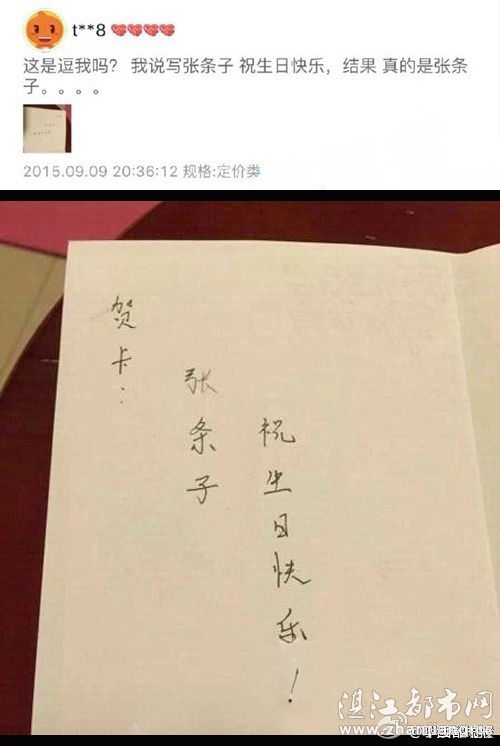 t**8
这是逗我吗? 我说写张条子 祝生日快乐，结果 真的是张条
子。。。。
2015.09.09 20:36:12 规格:定价类
贺卡：
张条子
祝生日快乐！
湛江都市网